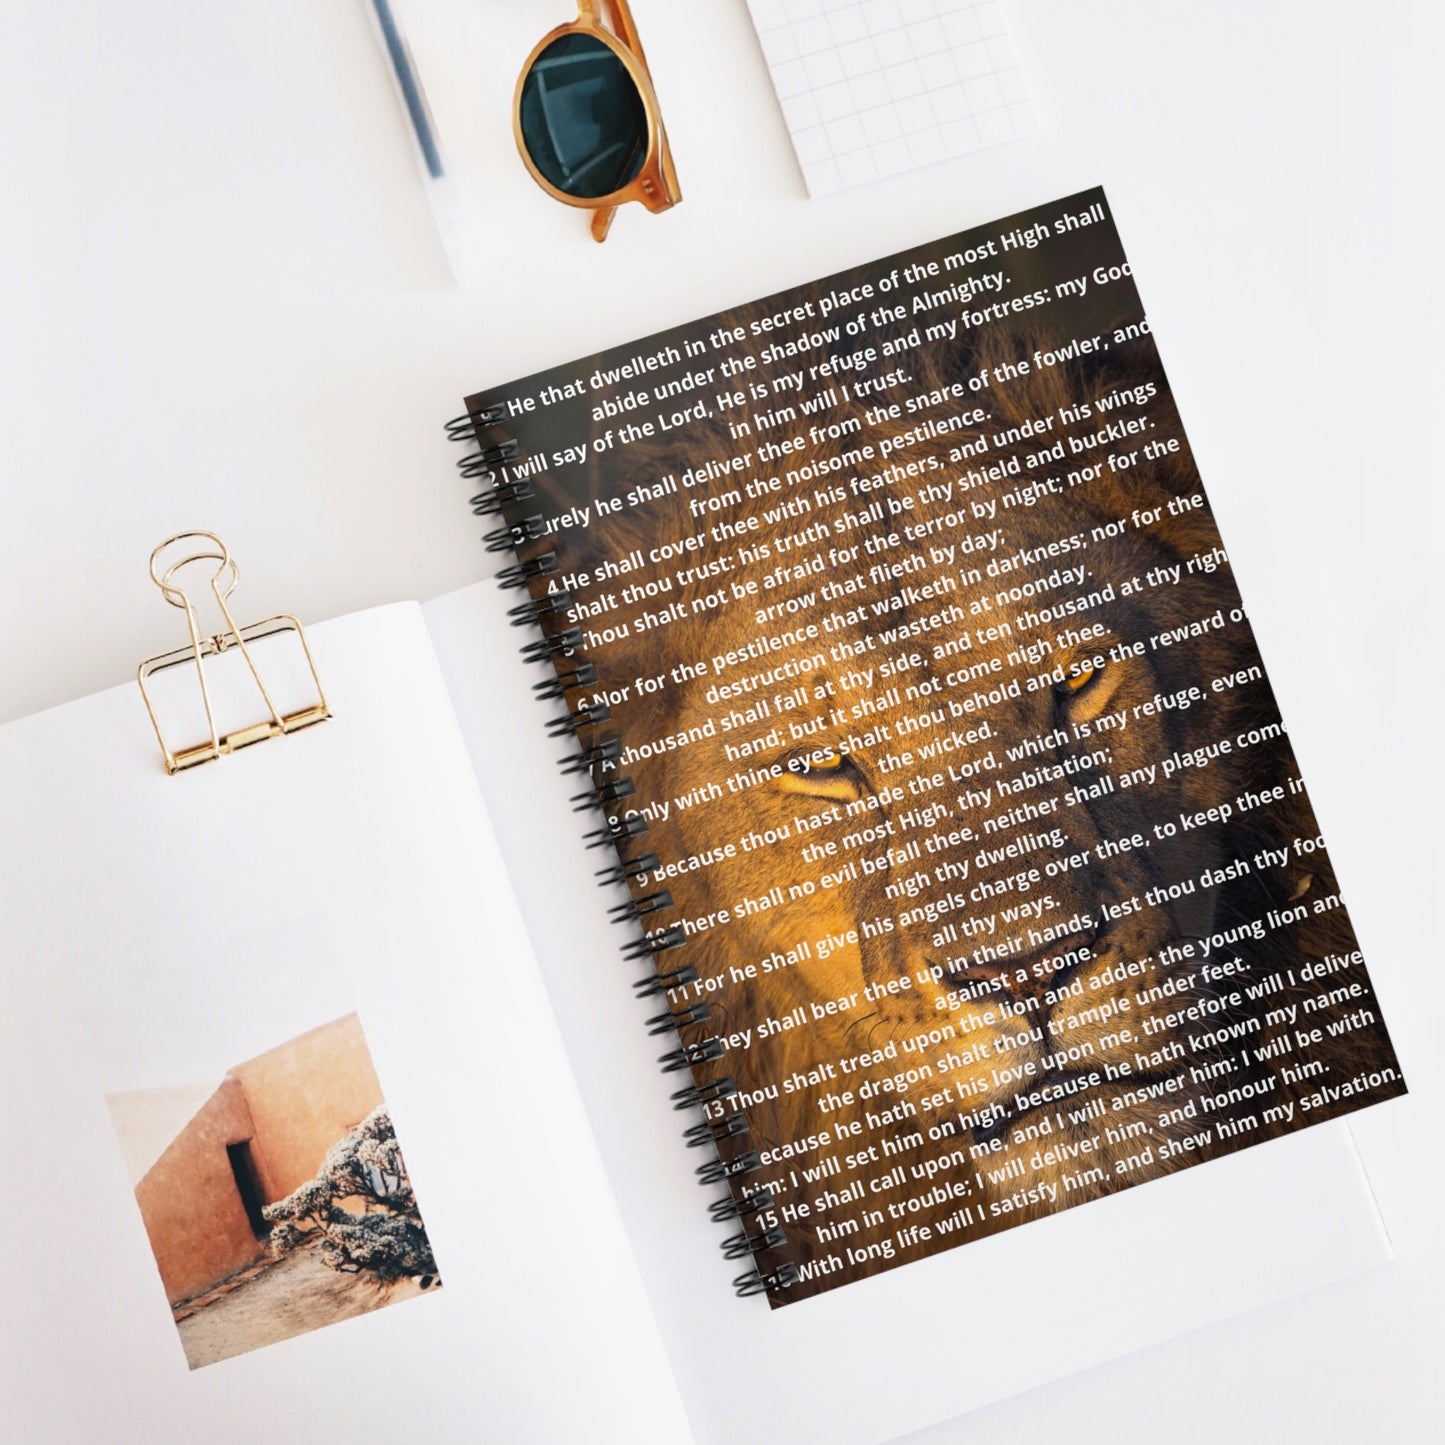 He that dwelleth in the secret place of the most High shall
abide under the shadow of the Almighty.
2 I will say of the Lord, He is my refuge and my fortress: my God
in him will I trust.
3 Surely he shall deliver thee from the snare of the fowler, and
from the noisome pestilence.
4 He shall cover thee with his feathers, and under his wings
shalt thou trust: his truth shall be thy shield and buckler.
5 Thou shalt not be afraid for the terror by night; nor for the
arrow that flieth by day;
6 Nor for the pestilence that walketh in darkness; nor for the
destruction that wasteth at noonday.
7 A thousand shall fall at thy side, and ten thousand at thy righ
hand; but it shall not come nigh thee.
8 Only with thine eyes shalt thou behold and see the reward of
the wicked.
9 Because thou hast made the Lord, which is my refuge, even
the most High, thy habitation;
10 There shall no evil befall thee, neither shall any plague come
nigh thy dwelling.
11 For he shall give his angels charge over thee, to keep thee in
all thy ways.
12 They shall bear thee up in their hands, lest thou dash thy foo
against a stone.
13 Thou shalt tread upon the lion and adder: the young lion and
the dragon shalt thou trample under feet.
14 ecause he hath set his love upon me, therefore will I delive
him: I will set him on high, because he hath known my name.
15 He shall call upon me, and I will answer him: I will be with
him in trouble; I will deliver him, and honour him.
16 With long life will I satisfy him, and shew him my salvation.